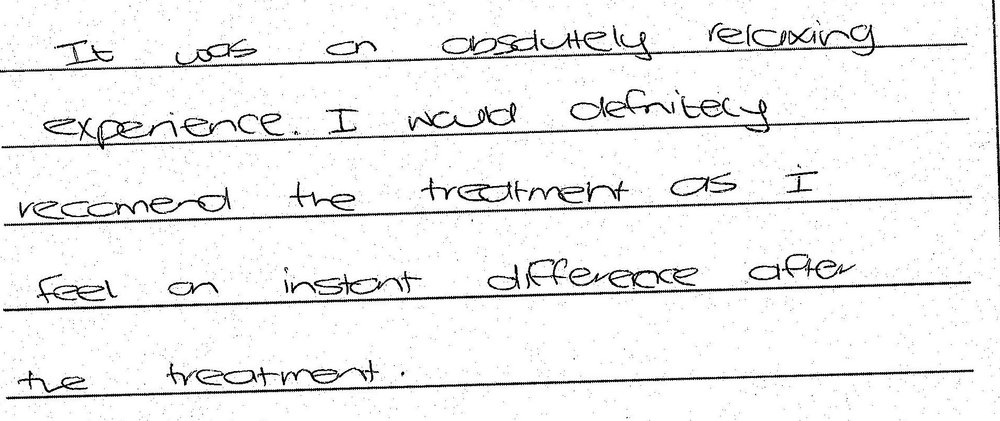 It was an absolutely relaxing
experience. I would definitely
recomend the treatment as I
feel an instant difference after
the treatment.